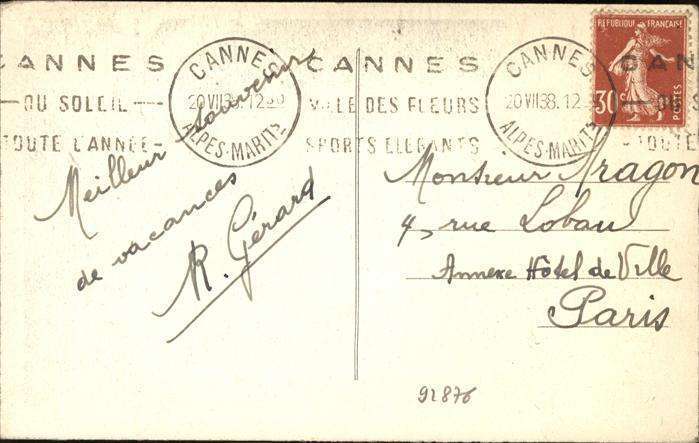 CANNES
DU SOLEIL
TOUTE L'ANNÉE
CANNES
20 VII 38. 12
ALPES-MARITS
CANNES
VILLE DES FLEURS
SPORTS ELEGANTS
CANNES
20 VII 38. 12
ALPES-MARITS
REPUBLIQUE FRANÇAISE
30c
POSTES
CAN
DU S
TOUTE
Meilleur souvenir
de vacances
R. Gérard
Monsieur Aragon
4, rue Lobau
Annexe Hôtel de Ville
Paris
92876